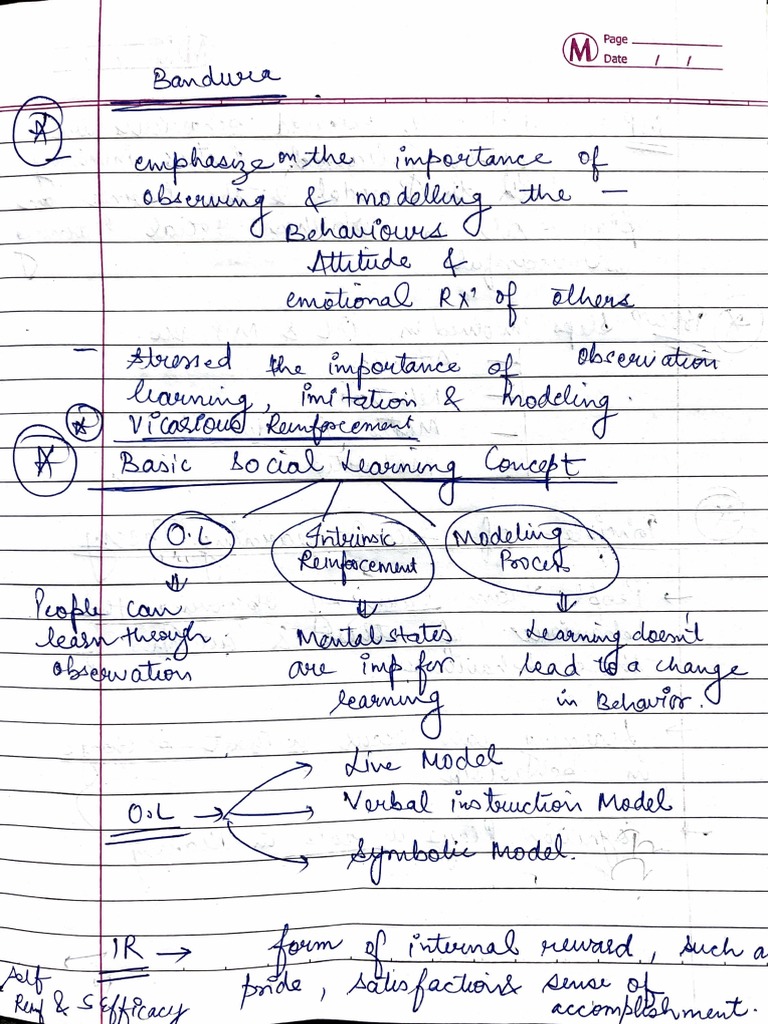 M Page
Date / /
Bandura
emphasize on the importance of
observing & modelling the —
Behaviours
Attitude &
emotional Rxⁿ of others
— stressed the importance of observation
learning, imitation & modeling.
Vicarious Reinforcement
Basic Social Learning Concept
O.L Intrinsic Reinforcement Modeling Process
People can learn through observation
Mental states are imp for learning
Learning doesn't lead to a change in Behavior.
Live Model
O.L → Verbal instruction Model
Symbolic Model.
IR → form of internal reward, such a
pride, satisfaction & sense of
accomplishment.
Self
Reinf & S efficacy